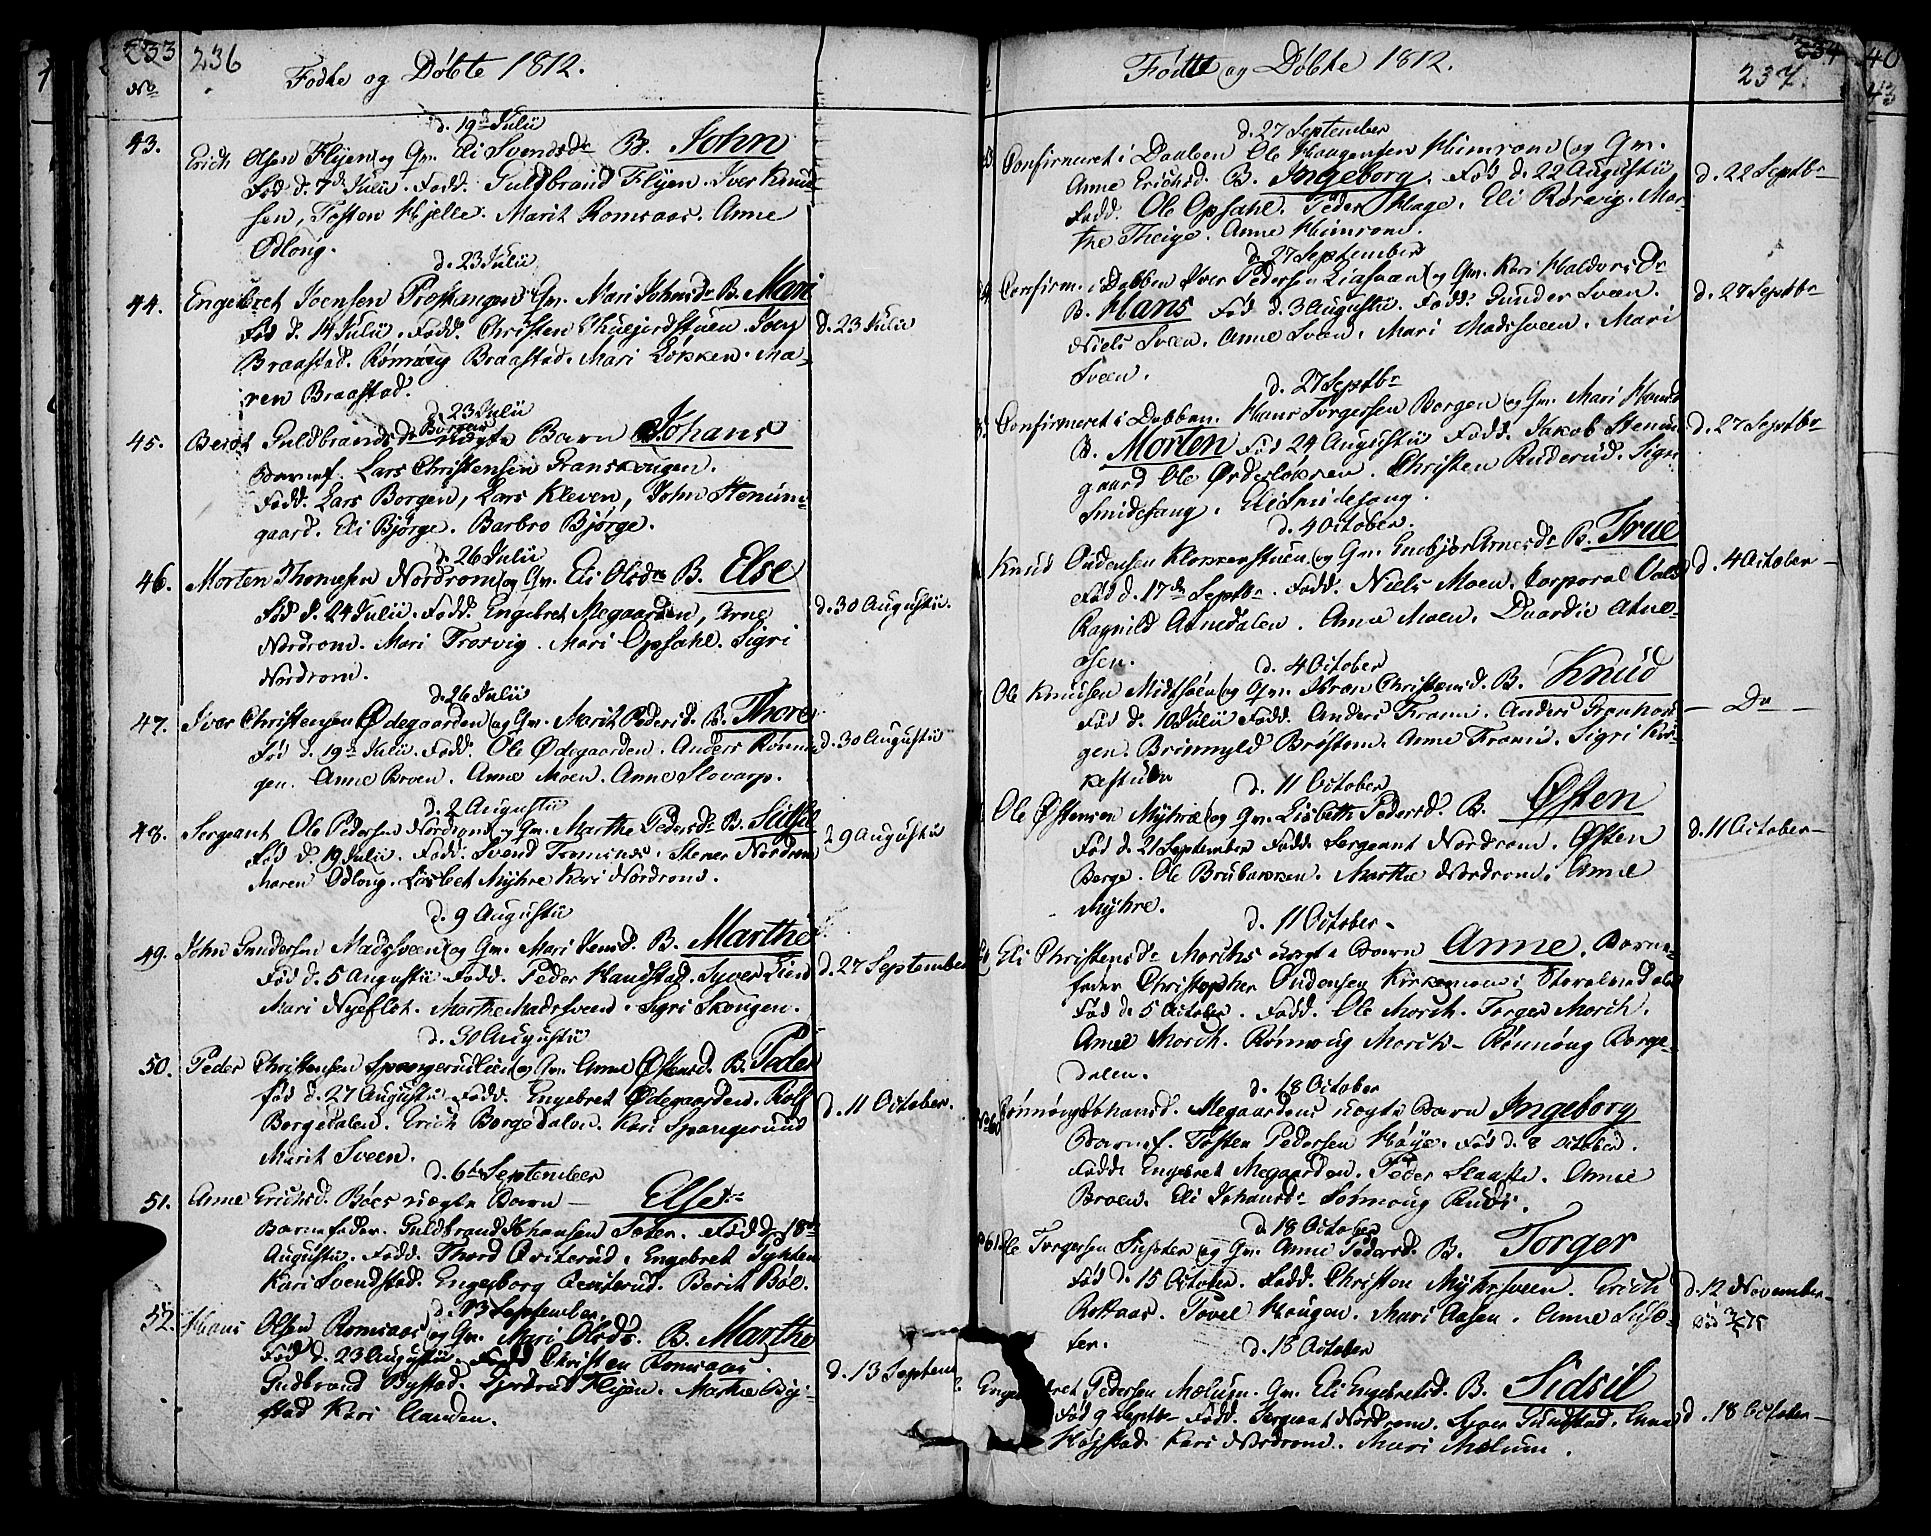 233 236
Fødte og Døbte 1812.
No
d. 19de Julii
43. Erich Olsen Flÿen og Qv. Eli Svendsdr B. John
Fød d. 7de Julii. Fadd. Guldbrand Flÿen. Iver Knud-
sen, Tosten Hjelle. Marit Romsaas. Anne
Odlong.
d. 23 Julii
44. Engebret Joensen Qv. Mari Johnsdr B. Mari
Fød d. 14 Julii. Fadd. Christen Iver
Braastad. Rønnøug Braastad. Mari Løkken. Ma-
ren Braastad.
d. 23 Julii
d. 23 Julii
45. Berit Guldbrandsdr Borgen uægte Barn Johans
Barnef. Lars Christensen Granskougen.
Fadd. Lars Borgen, Lars Kleven, John Stenum-
gaard. Eli Bjørge. Barbro Bjørge.
d. 26 Julii
46. Morten Thomesen Nordrom og Qv. Eli Olsdr B. Else
Fød d. 24 Julii. Fadd. Engebret Megaarden, Arne
Nordrom. Mari Trosvig. Mari Opsahl. Sigri
Nordrom.
d. 30 Augustii.
d. 26 Julii
47. Iver Christensen Ødegaarden og Qv. Marit Pedersd. B. Thore
Fød d. 19de Julii. Fadd. Ole Ødegaarden. Anders
gen. Anne Broen. Anne Moen. Anne Slovarp.
d. 30 Augustii
d. 2 Augustii
48. Sergeant Ole Pedersen Nordrom og Qv. Marthe Pedersdr B. Sidsel
Fød d. 19 Julii. Fadd. Svend Tromsnes. Stener Nordrom
Maren Odlong. Lisbet Mÿhre Kari Nordrom.
29 Augustii
d. 9 Augustii
49. John Gundersen Madssveen og Qv. Mari Jensd. B. Marthe
Fød d. 5 Augustii Fadd. Peder Haugstad. Syver Lien
Mari Nyeflot. Marthe Madssveen. Sigri Skougen.
d. 27 September
d. 30 Augustii
50. Peder Christensen Spangerudlien og Qv. Anne Østensd. B. Peder
fød d. 27 Augustii Fadd. Engebret Ødegaarden. Rolf
Borgedalen. Erich Borgedalen. Kari Spangerud
Marit Sveen.
d. 11 October.
d. 6te September
51. Anne Erichsd. Böes uægte Barn Else
Barnefader. Guldbrand Johansen Toten. Fød d. 18de
Augustii. Fadd. Thord Qvisterud. Engebret
Kari Svendstad. Engeborg Qvisterud. Berit Böe.
d. 13 September
52. Hans Olsen Romsaas og Qv. Mari Olsdr. B. Marthe
Fød d. 23 Augustii. Fadd Christen Romsaas.
Gudbrand Bystad. Flÿen. Marthe By-
stad Kari Aanden.
d. 13 Septem
234
Fødte og Døbte 1812.
237.
d. 27 September
Confirmeret i Daaben Ole Haagensen Himrom og Qv.
Anne Erichsd. B. Ingeborg. Fød d. 22 Augustii
Fadd. Ole Opsahl. Peder Hage. Eli Rørvig. Mar-
the Theige. Anne Himrom.
d. 22 Septbr
d. 27 September
Confirm. i Dabben Iver Pedersen Liasaaen og Qv. Kari Haldorsdr
B. Hans Fød d. 3 Augustii. Fadd. Gunder Sveen.
Niels Sveen. Anne Sveen. Mari Madssveen. Mari
Sveen.
d. 27 Septbr
d. 27 Septbr
Confirmeret i Dabben. Hans Torgersen Borgen og Qv. Mari
B. Morten Fød 24 Augustii Fadd. Jakob Stenum-
gaard Ole Christen Ruderud. Sigri
Smidesang. Eli Smidesang.
d. 27 Septbr
d. 4 October.
Knud Oudensen Klokkerstuen og Qv. Arnesdr B. True
Fød d. 17de Septbr. Fadd. Niels Moen. Corporal
Ragnild Annedalen. Anne Moen.
d. 4 October
d. 4 October
Ole Knudsen Midtsöen og Qv. Christensd. B. Knud
Fød d. 10 Julii Fadd. Anders Fromm. Anders
gen. Brønnyld Brøstem. Anne Fromm. Sigri Kir-
kestuen
Do
d. 11 October
Ole Østensen Mÿhre og Qv. Lisbeth Pedersd. B. Østen
Fød d. 21 September Fadd. Sergeant Nordrom. Østen
Berge. Ole Brubakken. Marthe Nordrom. Anne
Mÿhre.
d. 11 October
d. 11 October.
Eli Christensdr Morchs uægte Barn Anne. Barne-
fader Christopher Oudensen Kirkemoen i Storelvedalen
Fød d. 5 October. Fadd. Ole Morch. Torger Morch.
Anne Morch. Rønnoug Morch. Rønnoug Borge-
dalen.
d. 18 October
No 60 Rønnoug Johansd. Megaardens uægte Barn Ingeborg
Barnef. Tosten Pedersen Høÿe. Fød d. 8 October.
Fadd. Engebret Megaarden. Peder Slaatte. Anne
Broen. Eli Johansdr Rønnoug Ruud.
d. 18 October
No 61. Ole Torgersen og Qv. Anne Pedersd. B. Torger
Fød d. 15 October. Fadd. Christen Mÿhrsveen. Erich
Povel Haugen. Mari Aasen. Anne
ter.
d. 12 November
d. 18 October
Engebret Pedersen Mælum. Qv. Eli Engebretsd. B. Sidsil
Fød 9 Septbr Fadd. Sergeant Nordrom. Syver
Høystad. Kari Nordrom. Mari Mælum.
d. 18 October